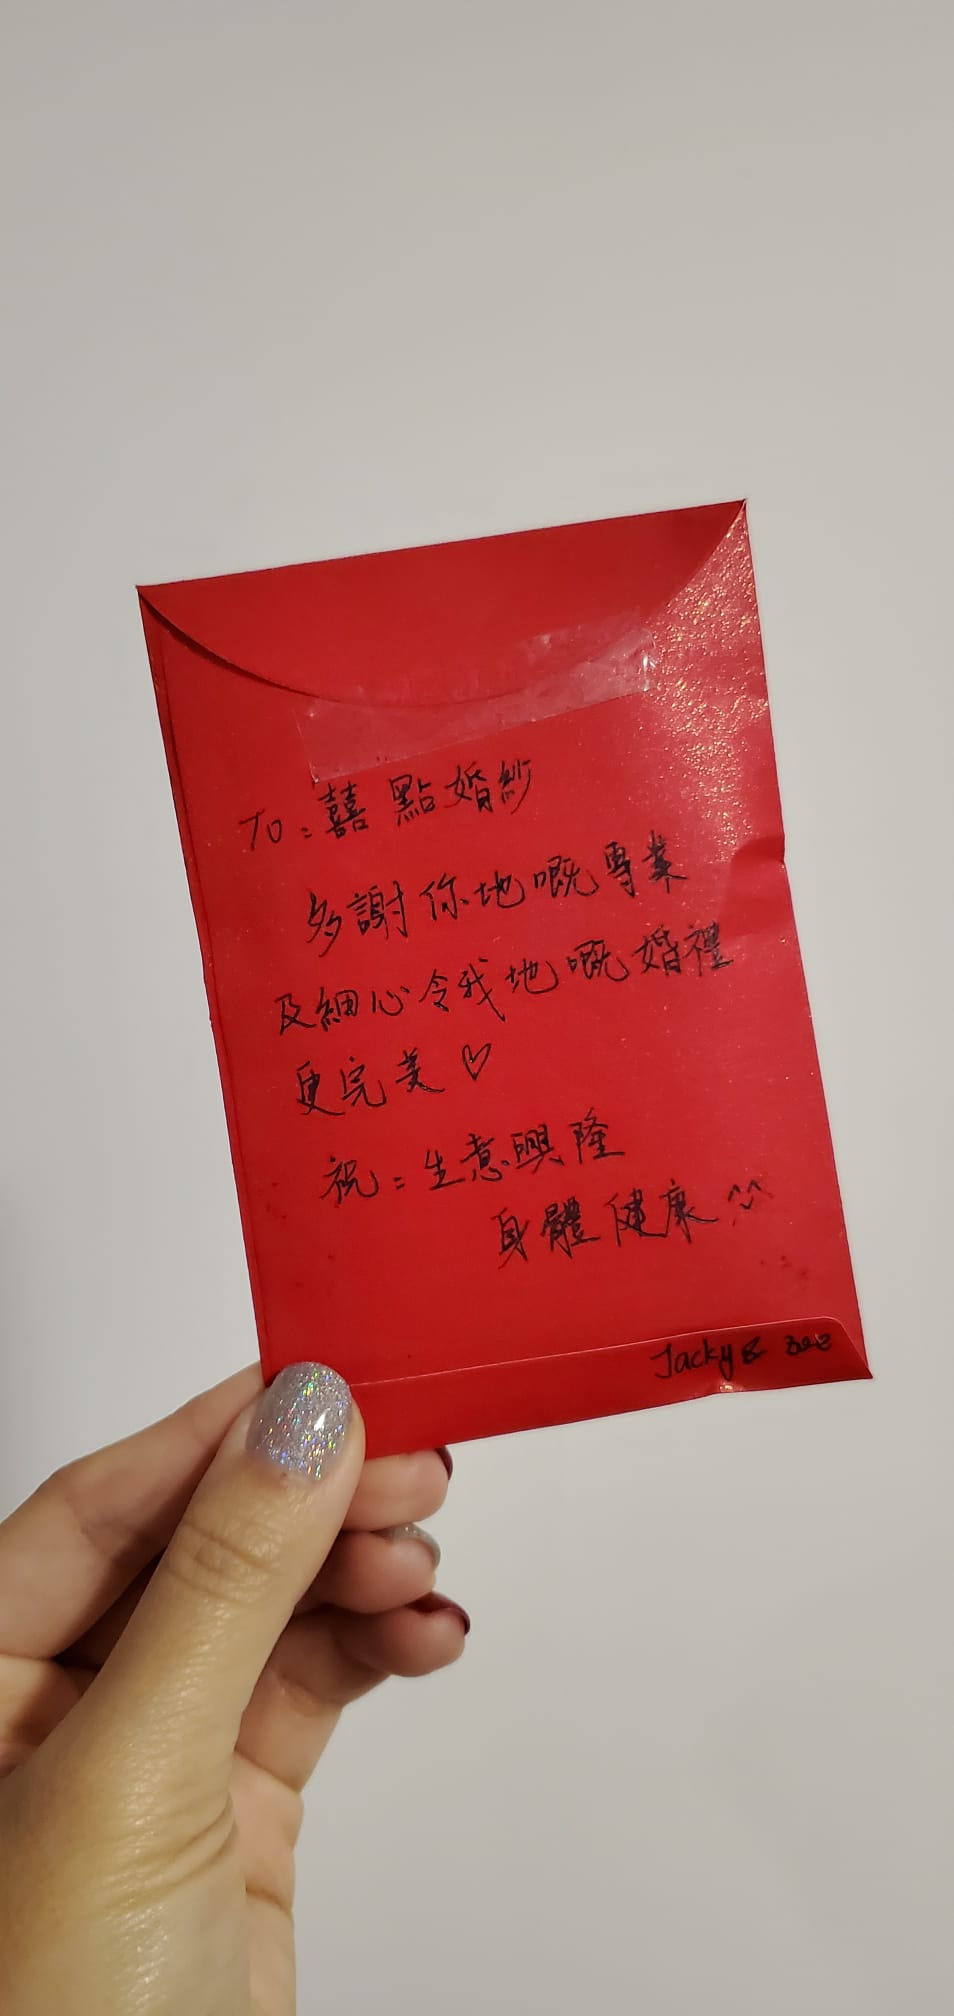 TO：囍點婚紗
多謝你地嘅專業
及細心令我地嘅婚禮
更完美♡
祝：生意興隆
身體健康 ^^
Jacky &